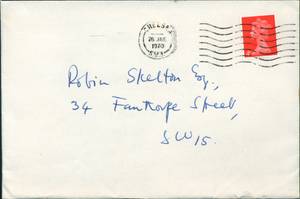 CHELSEA
26 JAN
1970
S.W.3
Robin Skelton Esq.,
34 Fanthorpe Street,
SW15.